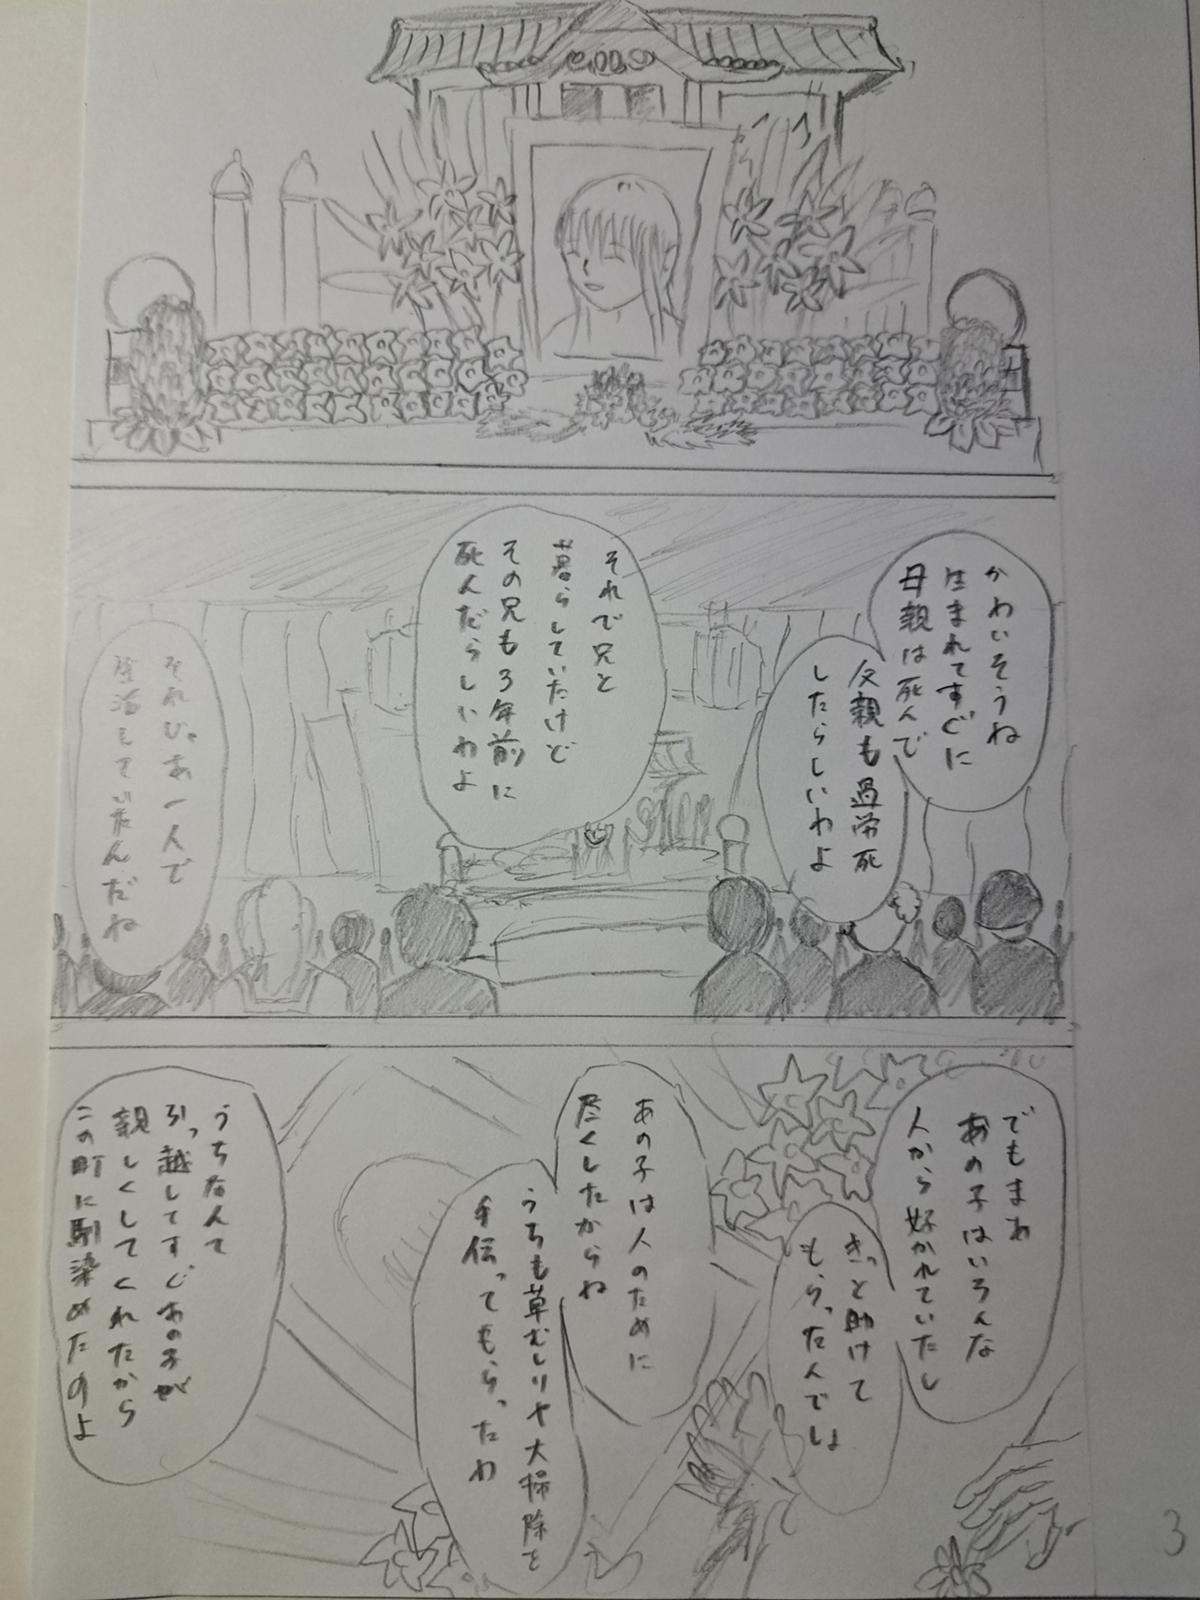 かわいそうね
生まれてすぐに
母親は死んで
父親も過労死
したらしいわよ
それで兄と
暮らしていたけど
その兄も3年前に
死んだらしいわよ
それじゃあ一人で
生活していたんだね
でもまあ
あの子はいろんな
人から好かれていたし
きっと助けて
もらったんでしょ
あの子は人のために
尽くしたからね
うちも草むしりや大掃除を
手伝ってもらったわ
うちなんて
引っ越してすぐあの子が
親しくしてくれたから
この町に馴染めたのよ
3